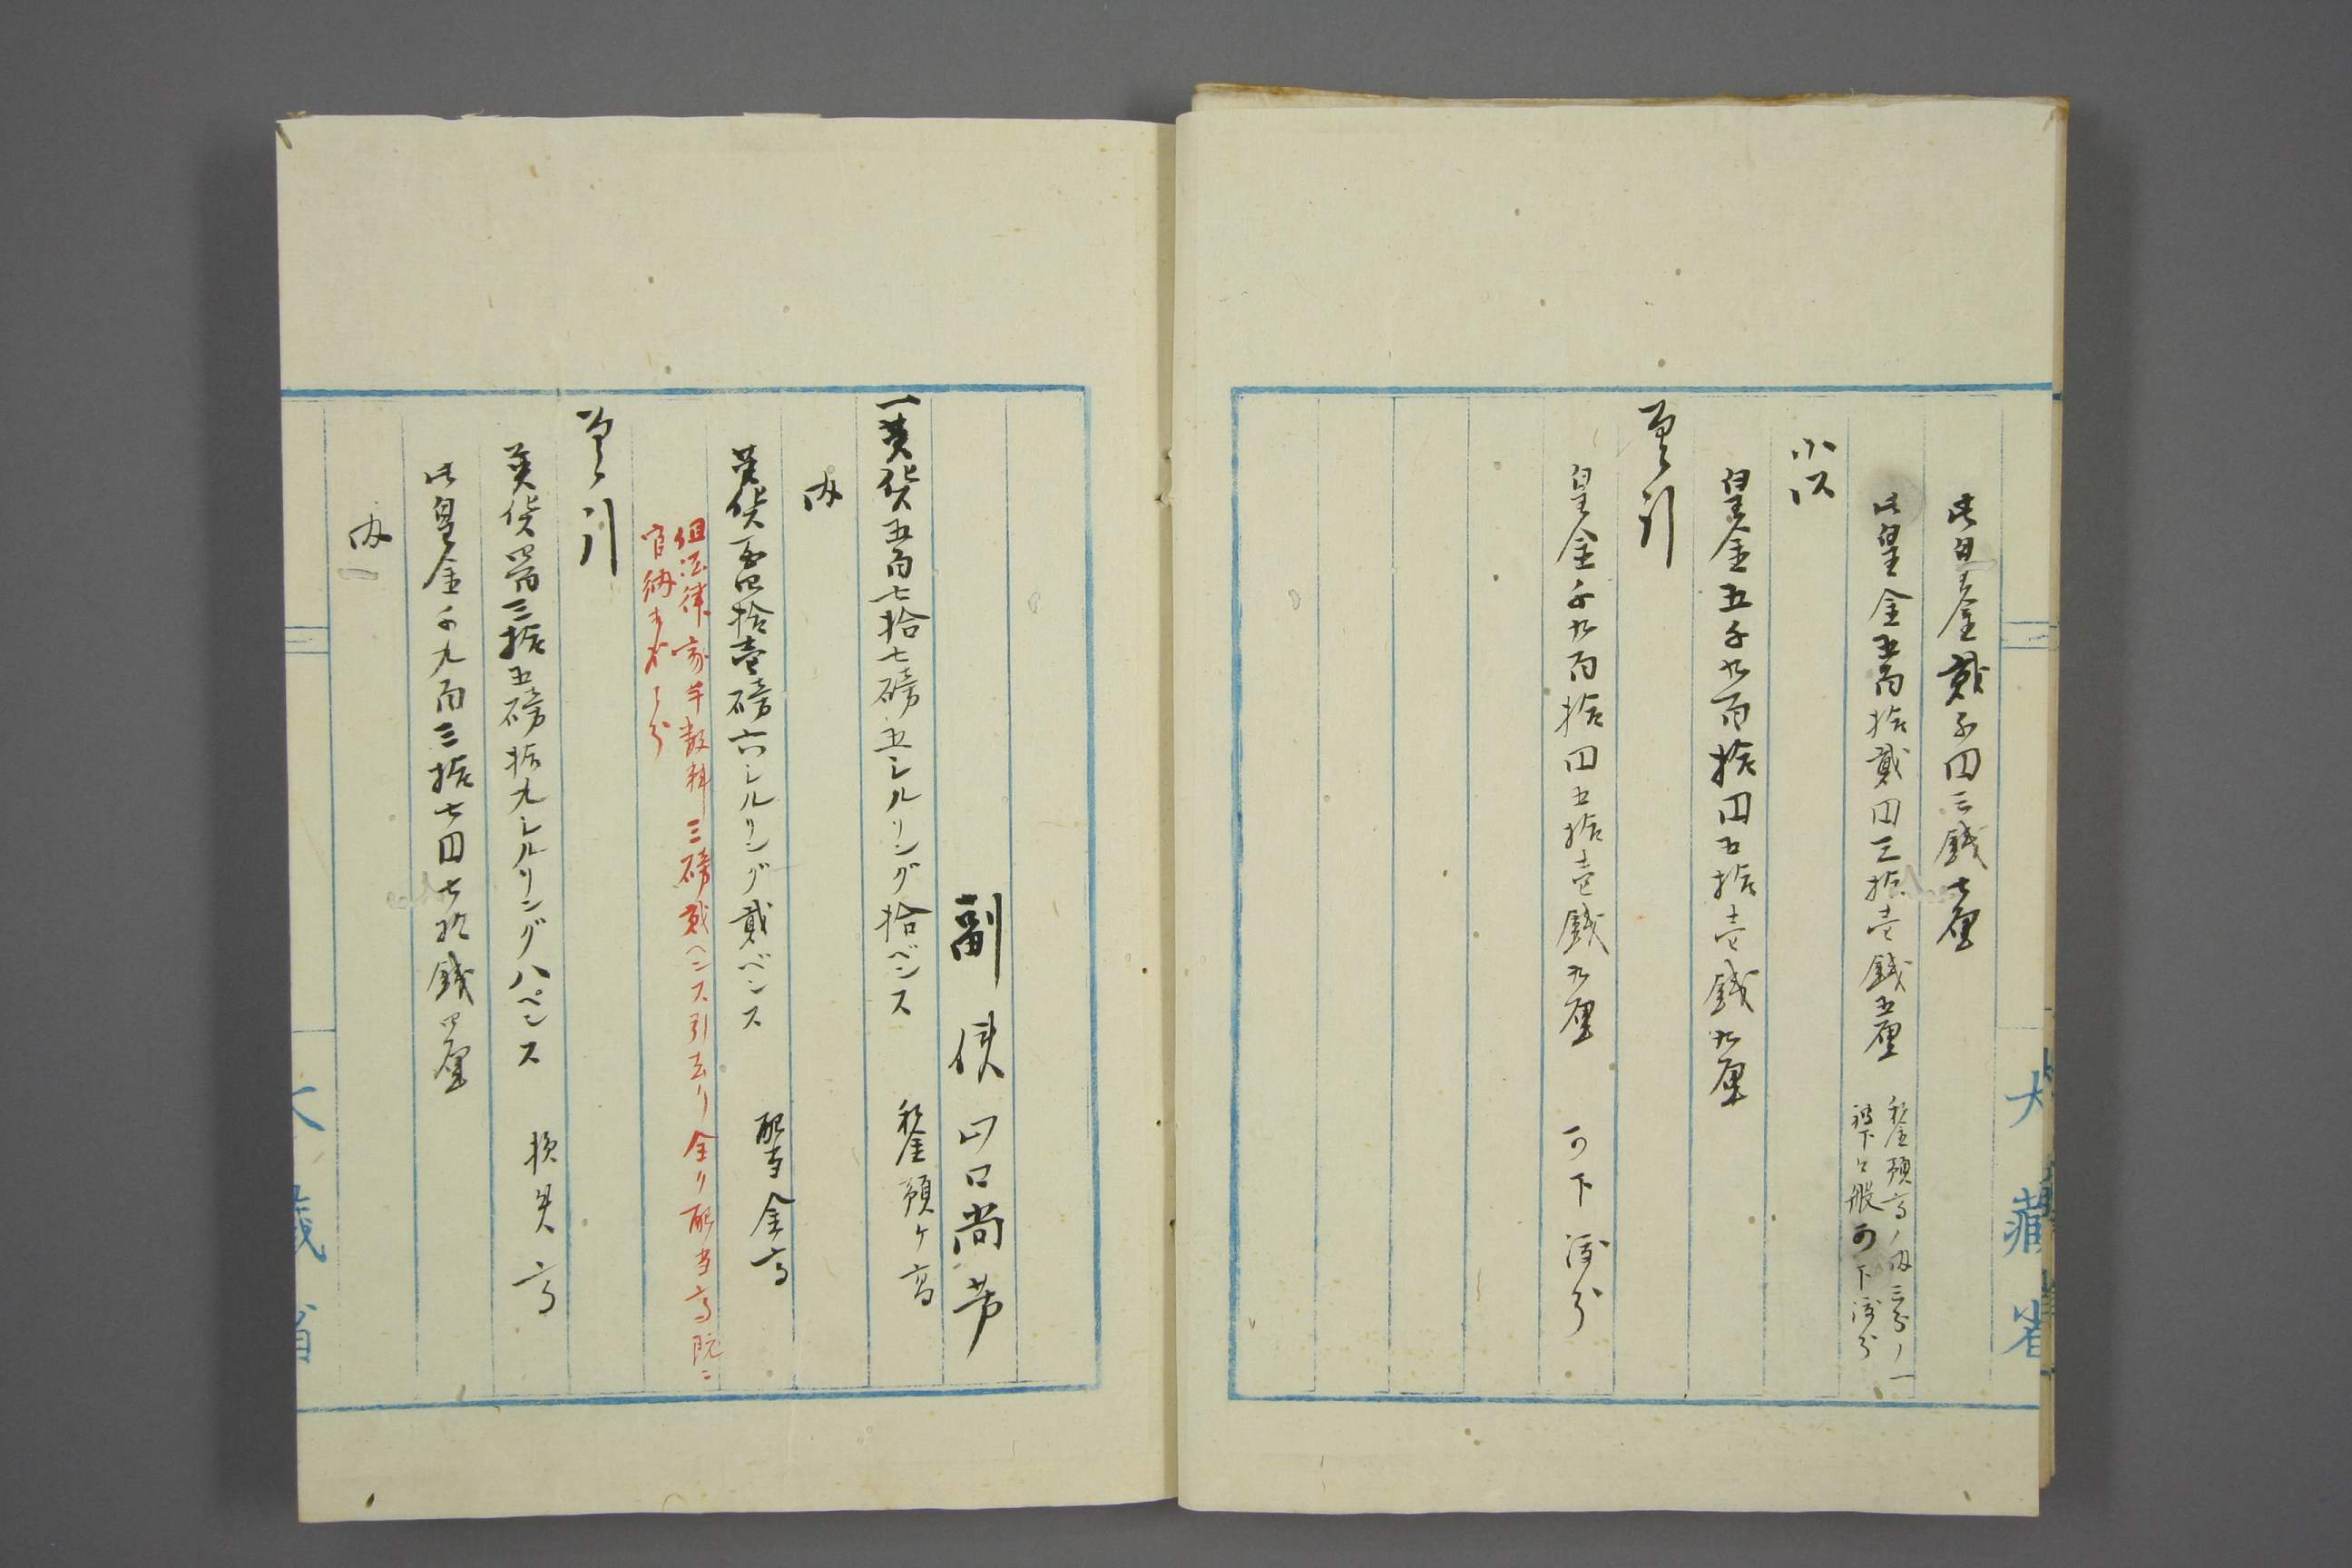 此皇金貳千円三銭七厘
此皇金五百拾貳円三拾壱銭五厘
私金預高ノ内三分ノ一
被下ケ般可下渡分
小以
皇金五千九百拾円五拾壱銭九厘
差引
皇金千九百拾円五拾壱銭九厘 可下渡分
大藏省
副使 山口尚芳
一英貨五百七拾七磅五シルリング拾ペンス 私金預ケ高
内
英貨百四拾壱磅六シルリング貳ペンス 配当金高
但法律家手数料三磅貳ペンス引去リ全ク配当高既ニ
官納オホノ分
差引
英貨四百三拾五磅拾九シルリング八ペンス 損失高
此皇金千九百三拾七円七拾銭四厘
内
大藏省